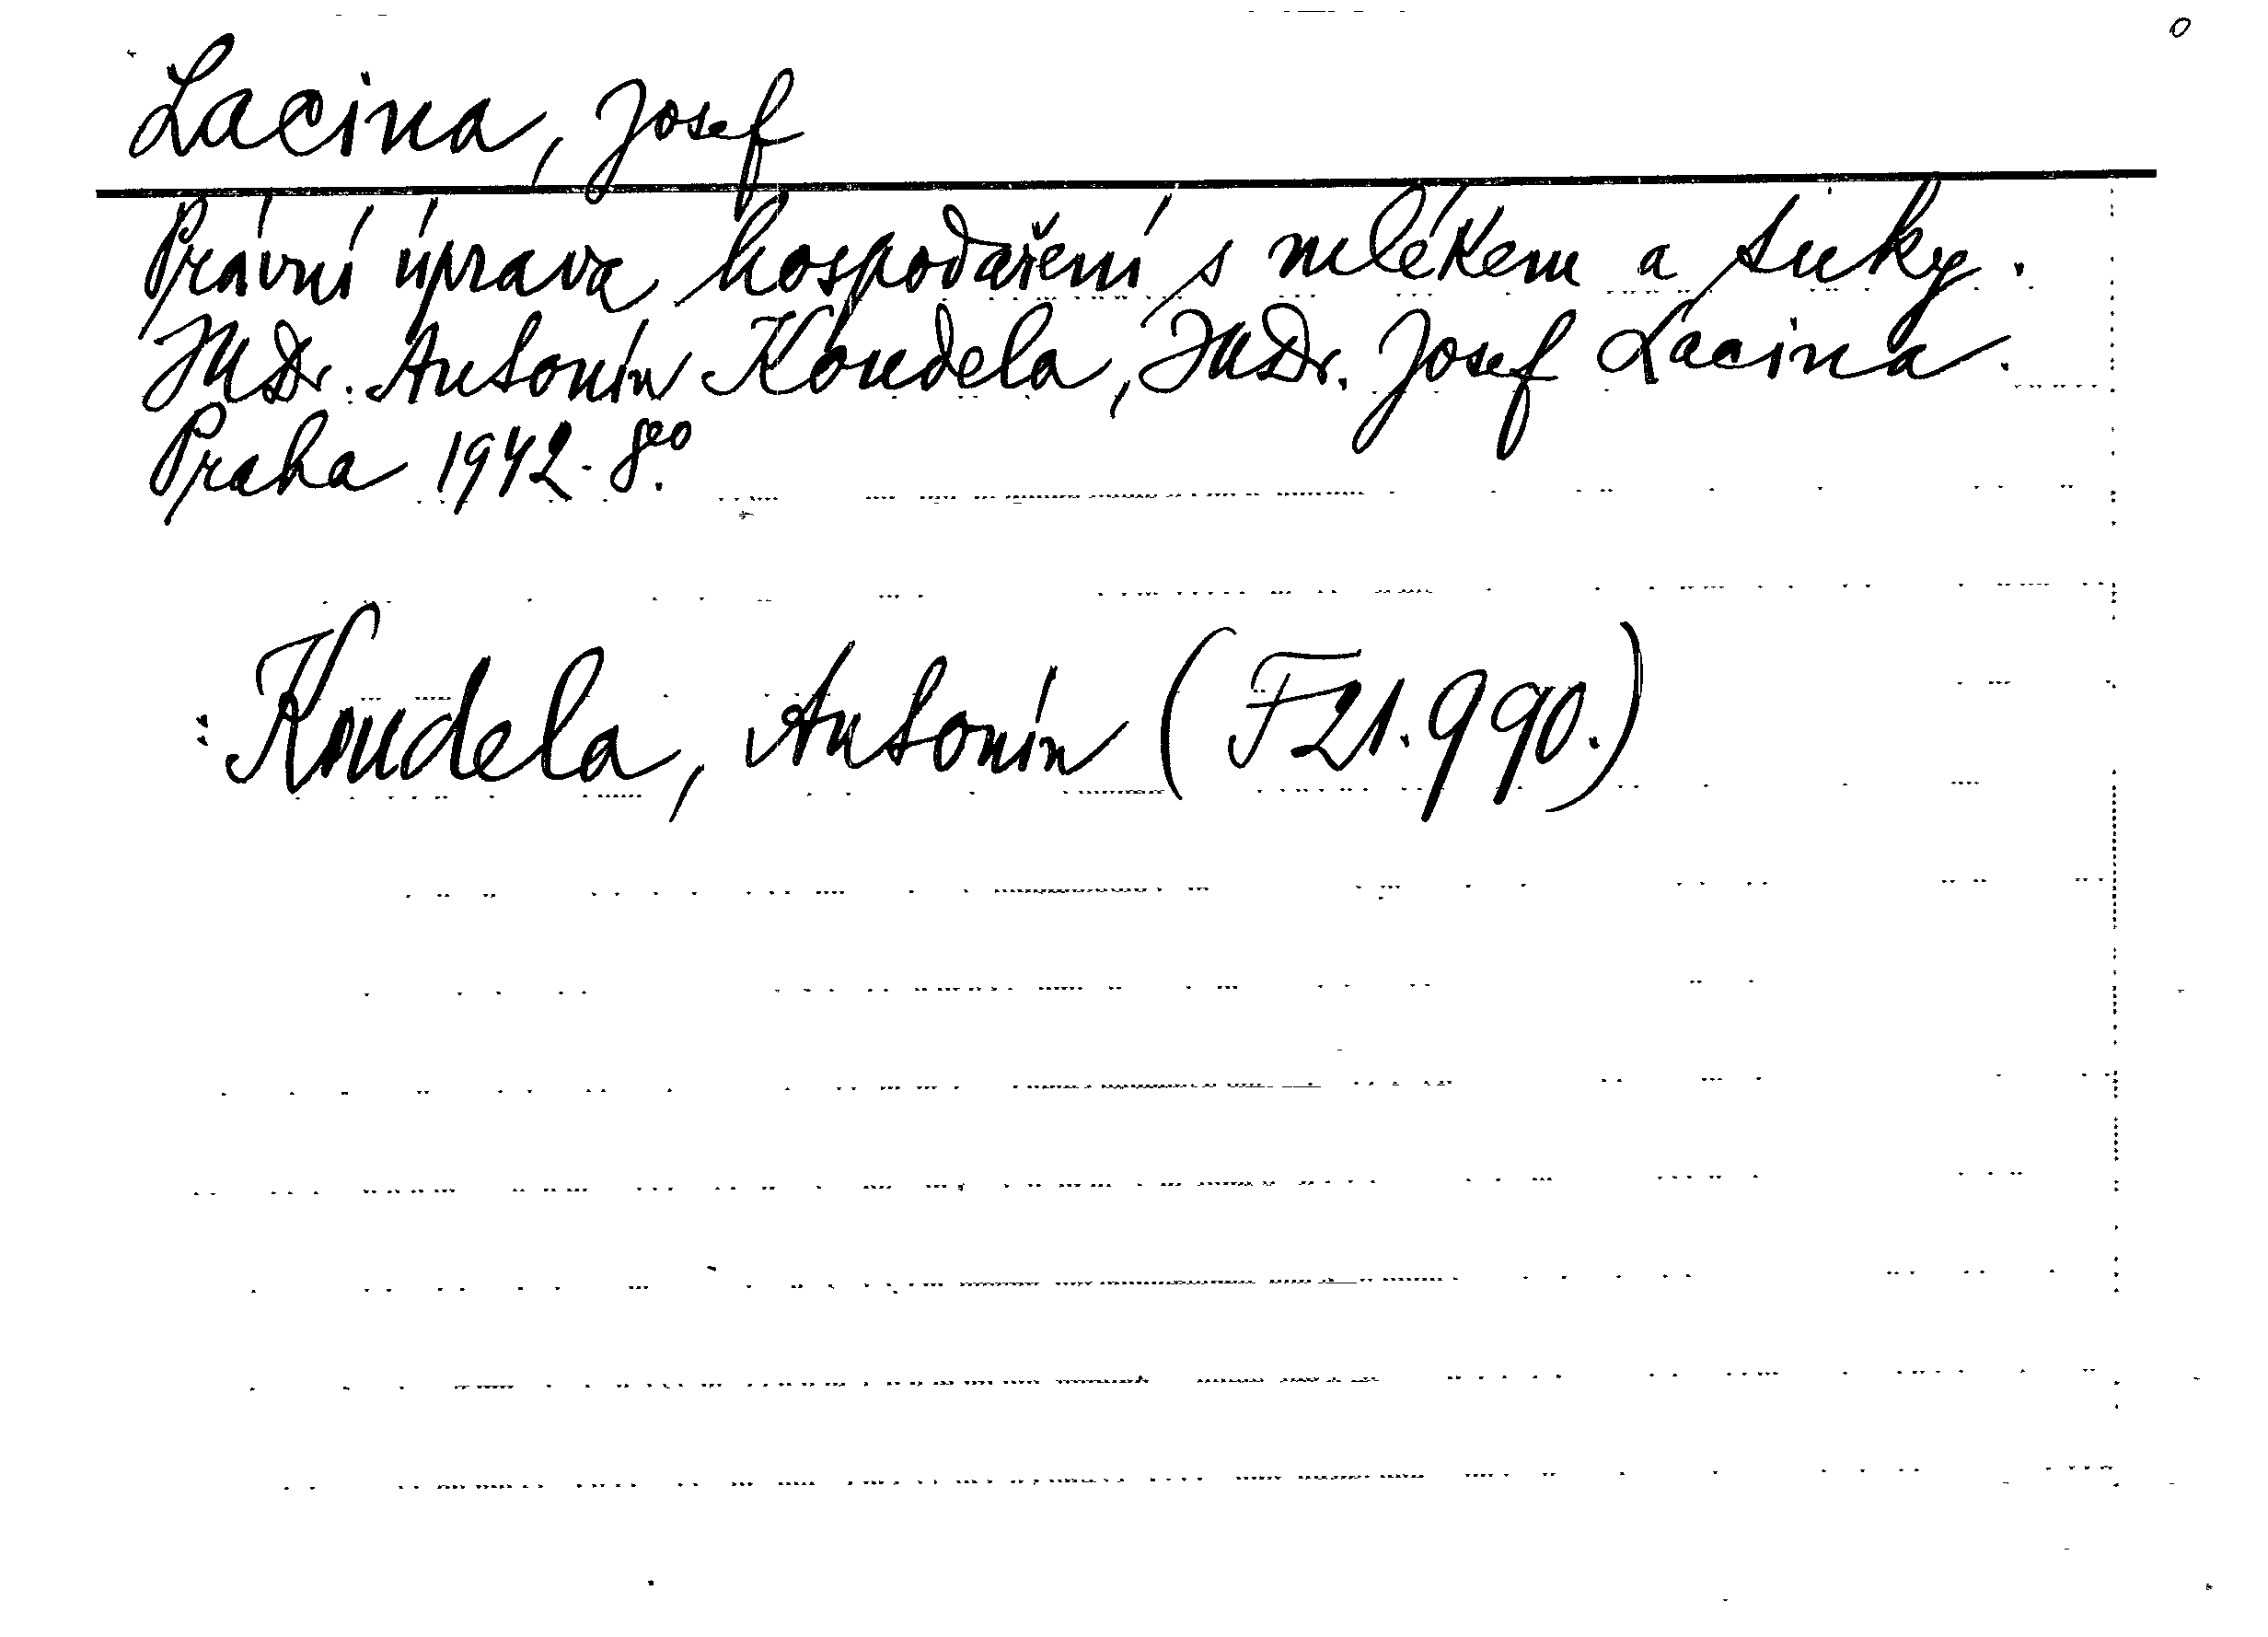 Lacina, Josef
Právní úprava hospodaření s mlékem a tuky.
JUDr. Antonín Koudela, JUDr. Josef Lacina.
Praha 1942. 8eo.
: Koudela, Antonín (F 21.990.)